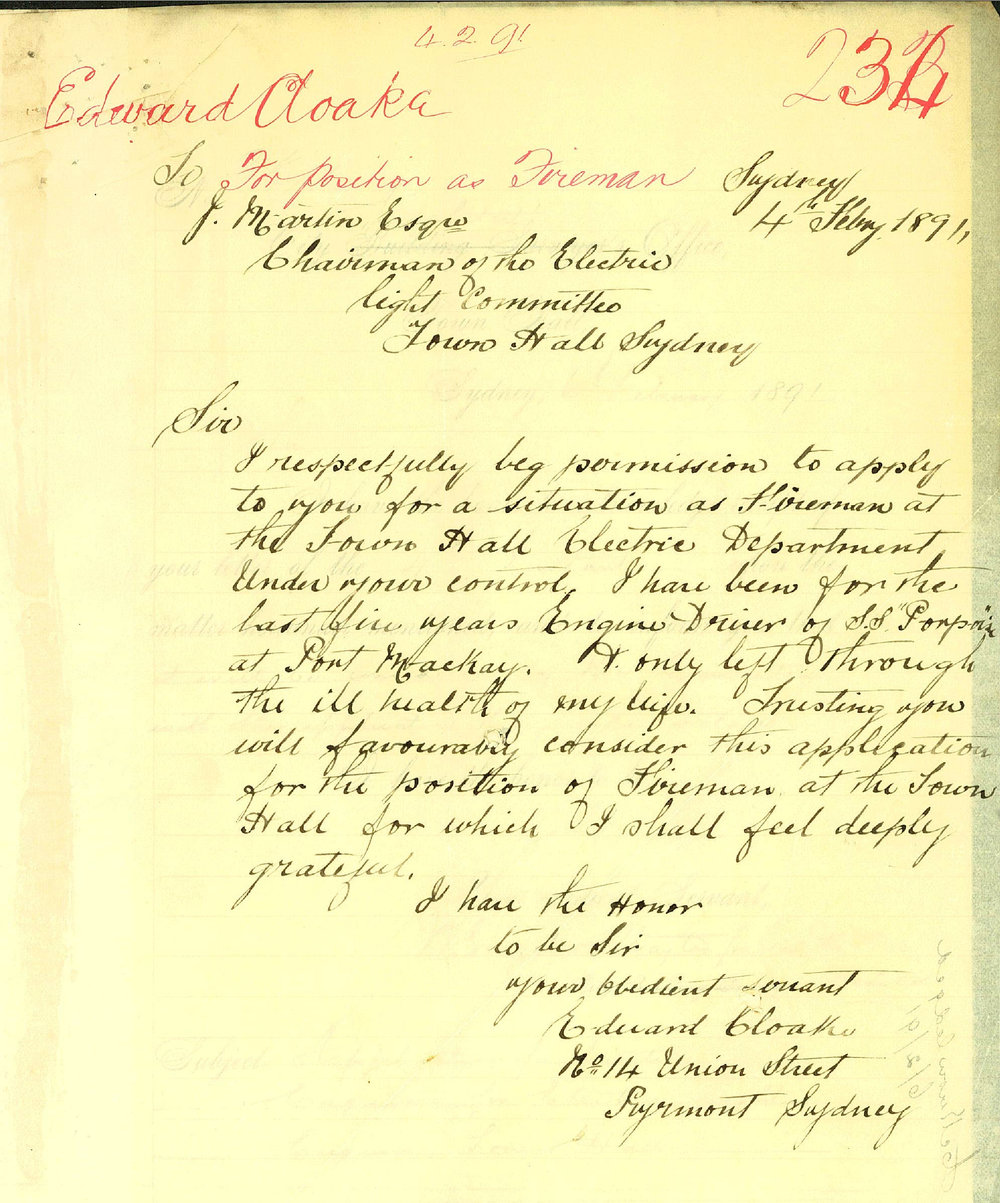 4.2.91
234
Edward Cloake
To For position as Fireman Sydney
J. Martin Esqre 4th Febry 1891,
Chairman of the Electric
light Committee
Town Hall Sydney
Sir
I respectfully beg permission to apply
to you for a situation as Fireman at
the Town Hall Electric Department
Under your control. I have been for the
last five years Engine Driver of S.S. "Porpoise"
at Port Mackay. & only left through
the ill health of my wife. Trusting you
will favourably consider this application
for the position of Fireman at the Town
Hall for which I shall feel deeply
grateful.
I have the Honor
to be Sir
your Obedient servant
Edward Cloake
No 14 Union Street
Pyrmont Sydney